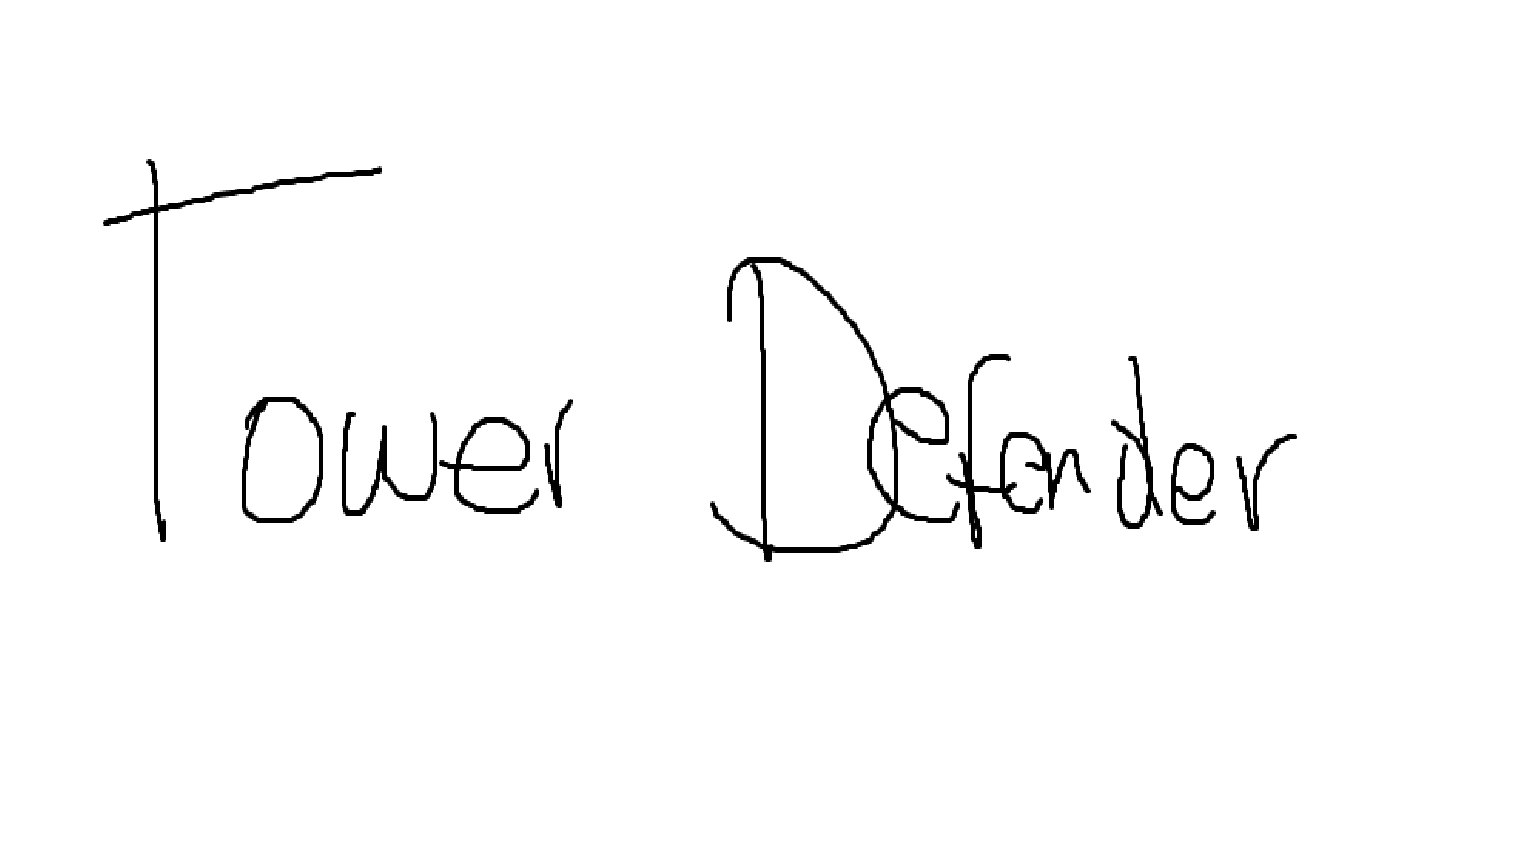 Tower Defender